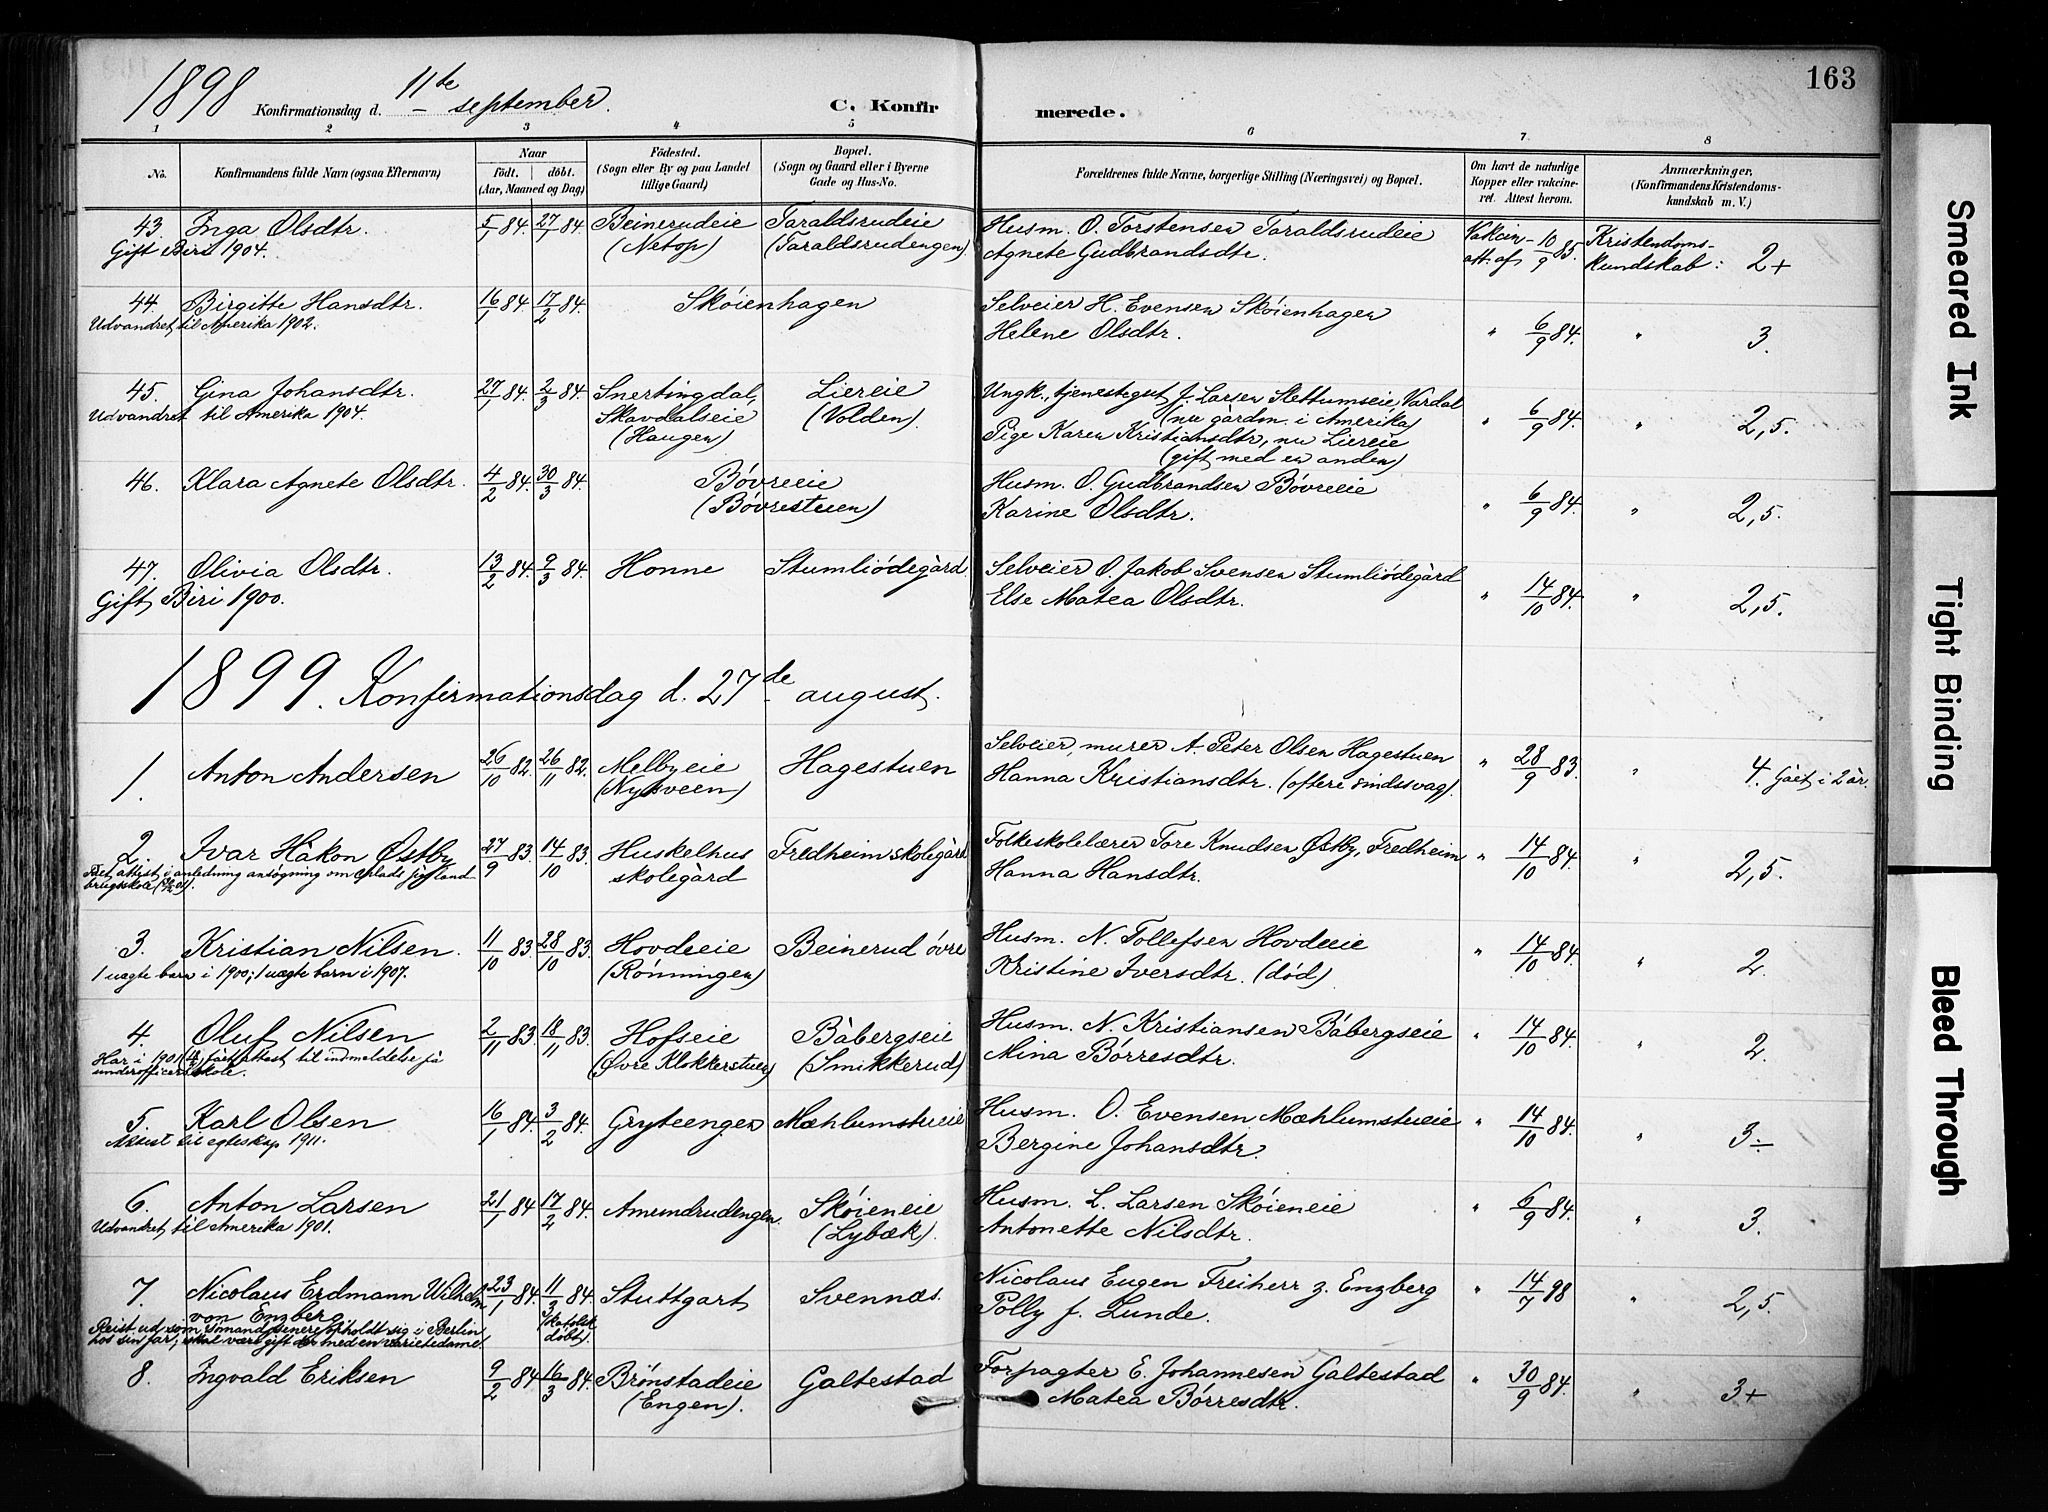 163
1898 Konfirmationsdag d. 11te september. C. Konfirmerede.
1 2 3 4 5 6 7 8
No. Konfirmandens fulde Navn (ogsaa Efternavn) Naar Födt. döbt. (Aar, Maaned og Dag) Födested. (Sogn eller By og paa Landet tillige Gaard) Bopæl. (Sogn og Gaard eller i Byerne Gade og Hus-No. Forældrenes fulde Navne, borgerlige Stilling (Næringsvei) og Bopæl. Om havt de naturlige Kopper eller vakcineret. Attest herom. Anmærkninger. (Konfirmandens Kristendomskundskab m. V.)
43. Inga Olsdtr. 5/1 84. 27/1 84. Beinerudeie Taraldsrudeie Husm. O. Torstensen Taraldsrudeie Vakcin- 10/9 85. Kristendoms-
Gift Biri 1904. (Netop) (Taraldsrudengen) Agnete Gudbrandsdtr. att. af kundskab: 2+
44. Birgitte Hansdtr. 16/1 84. 17/2 84. Skóienhagen Selveier H. Evensen Skóienhagen
Udvandret til Amerika 1902. Helene Olsdtr. " 6/9 84. " 3.
45. Gina Johansdtr. 27/1 84. 2/3 84. Snertingdal, Liereie Ungk., tjenestegut J. Larsen Slettumseie Vardal
Udvandret til Amerika 1904. Skavdalseie (Volden) (nu gàrdm. i Amerika) " 6/9 84. " 2,5.
(Haugen) Pige Karen Kristiansdtr, nu Liereie
(gift med en anden)
46. Klara Agnete Olsdtr. 4/2 84. 30/3 84. Bóvreeie Husm. O. Gudbrandsen Bóvreeie
(Bóvrestuen) Karine Olsdtr. " 6/9 84. " 2,5.
47. Olivia Olsdtr. 13/2 84. 9/3 84. Honne Stumliódegàrd Selveier O. Jakob Svensen Stumliódegàrd
Gift Biri 1900. Else Matea Olsdtr. " 14/10 84. " 2,5.
1899. Konfirmationsdag d. 27de august.
1. Anton Andersen 26/10 82. 26/11 82. Melbyeie Hagestuen Selveier, murer A. Peter Olsen Hagestuen " 28/9 83. " 4. Gàet i 2 àr.
(Nysveen) Hanna Kristiansdtr. (oftere sindssvag).
2. Ivar Hàkon Østby 27/9 83. 14/10 83. Huskelhus Fredheim skolegàrd Folkeskolelærer Tore Knudsen Østby, Fredheim " 14/10 84. " 2,5.
attest i anledning ansøgning om plads på land- skolegàrd Hanna Hansdtr.
brugsskole
3. Kristian Nilsen. 11/10 83. 28/10 83. Hovdeeie Beinerud óvre Husm. N. Tollefsen Hovdeeie " 14/10 84. " 2.
1 uægte barn i 1900; 1 uægte barn i 1907. (Rónningen) Kristine Iversdtr. (dód)
4. Oluf Nilsen 2/11 83. 18/11 83. Hofseie Bàbergseie Husm. N. Kristiansen Bàbergseie " 14/10 84. " 2.
Har i 1901 fàet attest til indmeldelse på (Øvre Klokkerstuen) (Smikkerud) Mina Bórresdtr.
underofficersskole.
5. Karl Olsen 16/1 84. 3/2 84. Gryteengen Mæhlumstueie Husm. O. Evensen Mæhlumstueie " 14/10 84. " 3÷
Attest til egteskap 1911. Bergine Johansdtr.
6. Anton Larsen 21/1 84. 17/2 84. Amundrudengen. Skóieneie Husm. L. Larsen Skóieneie " 6/9 84. " 3.
Udvandret til Amerika 1901. (Lybæk). Antonette Nilsdtr.
7. Nicolaus Erdmann Wilhelm 23/1 84. 11/3 84. Stuttgart Svennæs. Nicolaus Eugen Freiherr z. Enzberg " 14/7 98 " 2,5.
von Enzberg (katolsk Polly f. Lunde.
Reist ud som sömand, senere opholdt sig i Berlin döbt).
hos sin far; skal være gift der med en varietedame.
8. Ingvald Eriksen 9/2 84. 16/3 84. Brónstadeie Galtestad Forpagter E. Johannesen Galtestad " 30/9 84. " 3+
(Engen). Matea Bórresdtr.
Smeared Ink
Tight Binding
Bleed Through